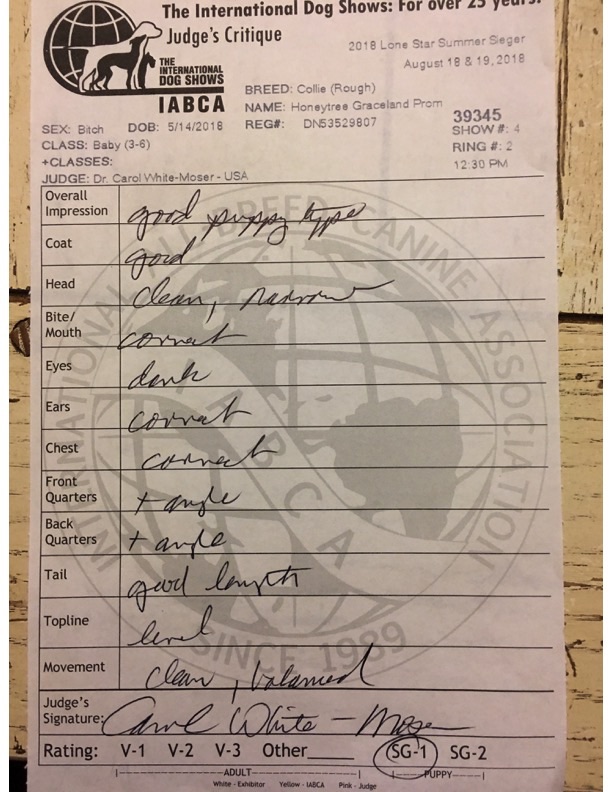 The International Dog Shows: For over 25 years.
Judge's Critique
2018 Lone Star Summer Sieger
August 18 & 19, 2018
THE
INTERNATIONAL
DOG SHOWS
IABCA
BREED: Collie (Rough)
NAME: Honeytree Graceland Prom
39345
SEX: Bitch DOB: 5/14/2018 REG#: DN53529807 SHOW #: 4
CLASS: Baby (3-6) RING #: 2
+CLASSES: 12:30 PM
JUDGE: Dr. Carol White-Moser - USA
Overall
Impression good puppy type
Coat good
Head clean, narrow
Bite/
Mouth correct
Eyes dark
Ears correct
Chest correct
Front
Quarters + angle
Back
Quarters + angle
Tail good length
Topline level
Movement clean, balanced
Judge's
Signature: Carol White-Moser
Rating: V-1 V-2 V-3 Other____ SG-1 SG-2
ADULT PUPPY
White - Exhibitor Yellow - IABCA Pink - Judge
INTERNATIONAL ALL BREED CANINE ASSOCIATION
IABCA
SINCE 1989